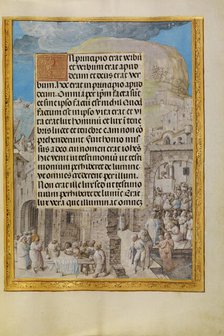 In principio erat ver
bum et verbum erat apud
deum et deus erat ver
bum. hoc erat in principio apud
deum. Omnia per ipsum facta sūt
et sine ipso factum est nichil Quod
factum est in ipso vita erat et vi
ta erat lux hominum et lux in te
nebris lucet et tenebre eam non cō
prehenderunt fuit homo mis
sus a deo cui nomen erat iohēs
hic venit in testimonium ut testi
monium perhiberet de lumine
ut omnes crederent per illum
Non erat ille lux sed ut testimo
nium perhiberet de lumine Erat
lux vera que illuminat omnem